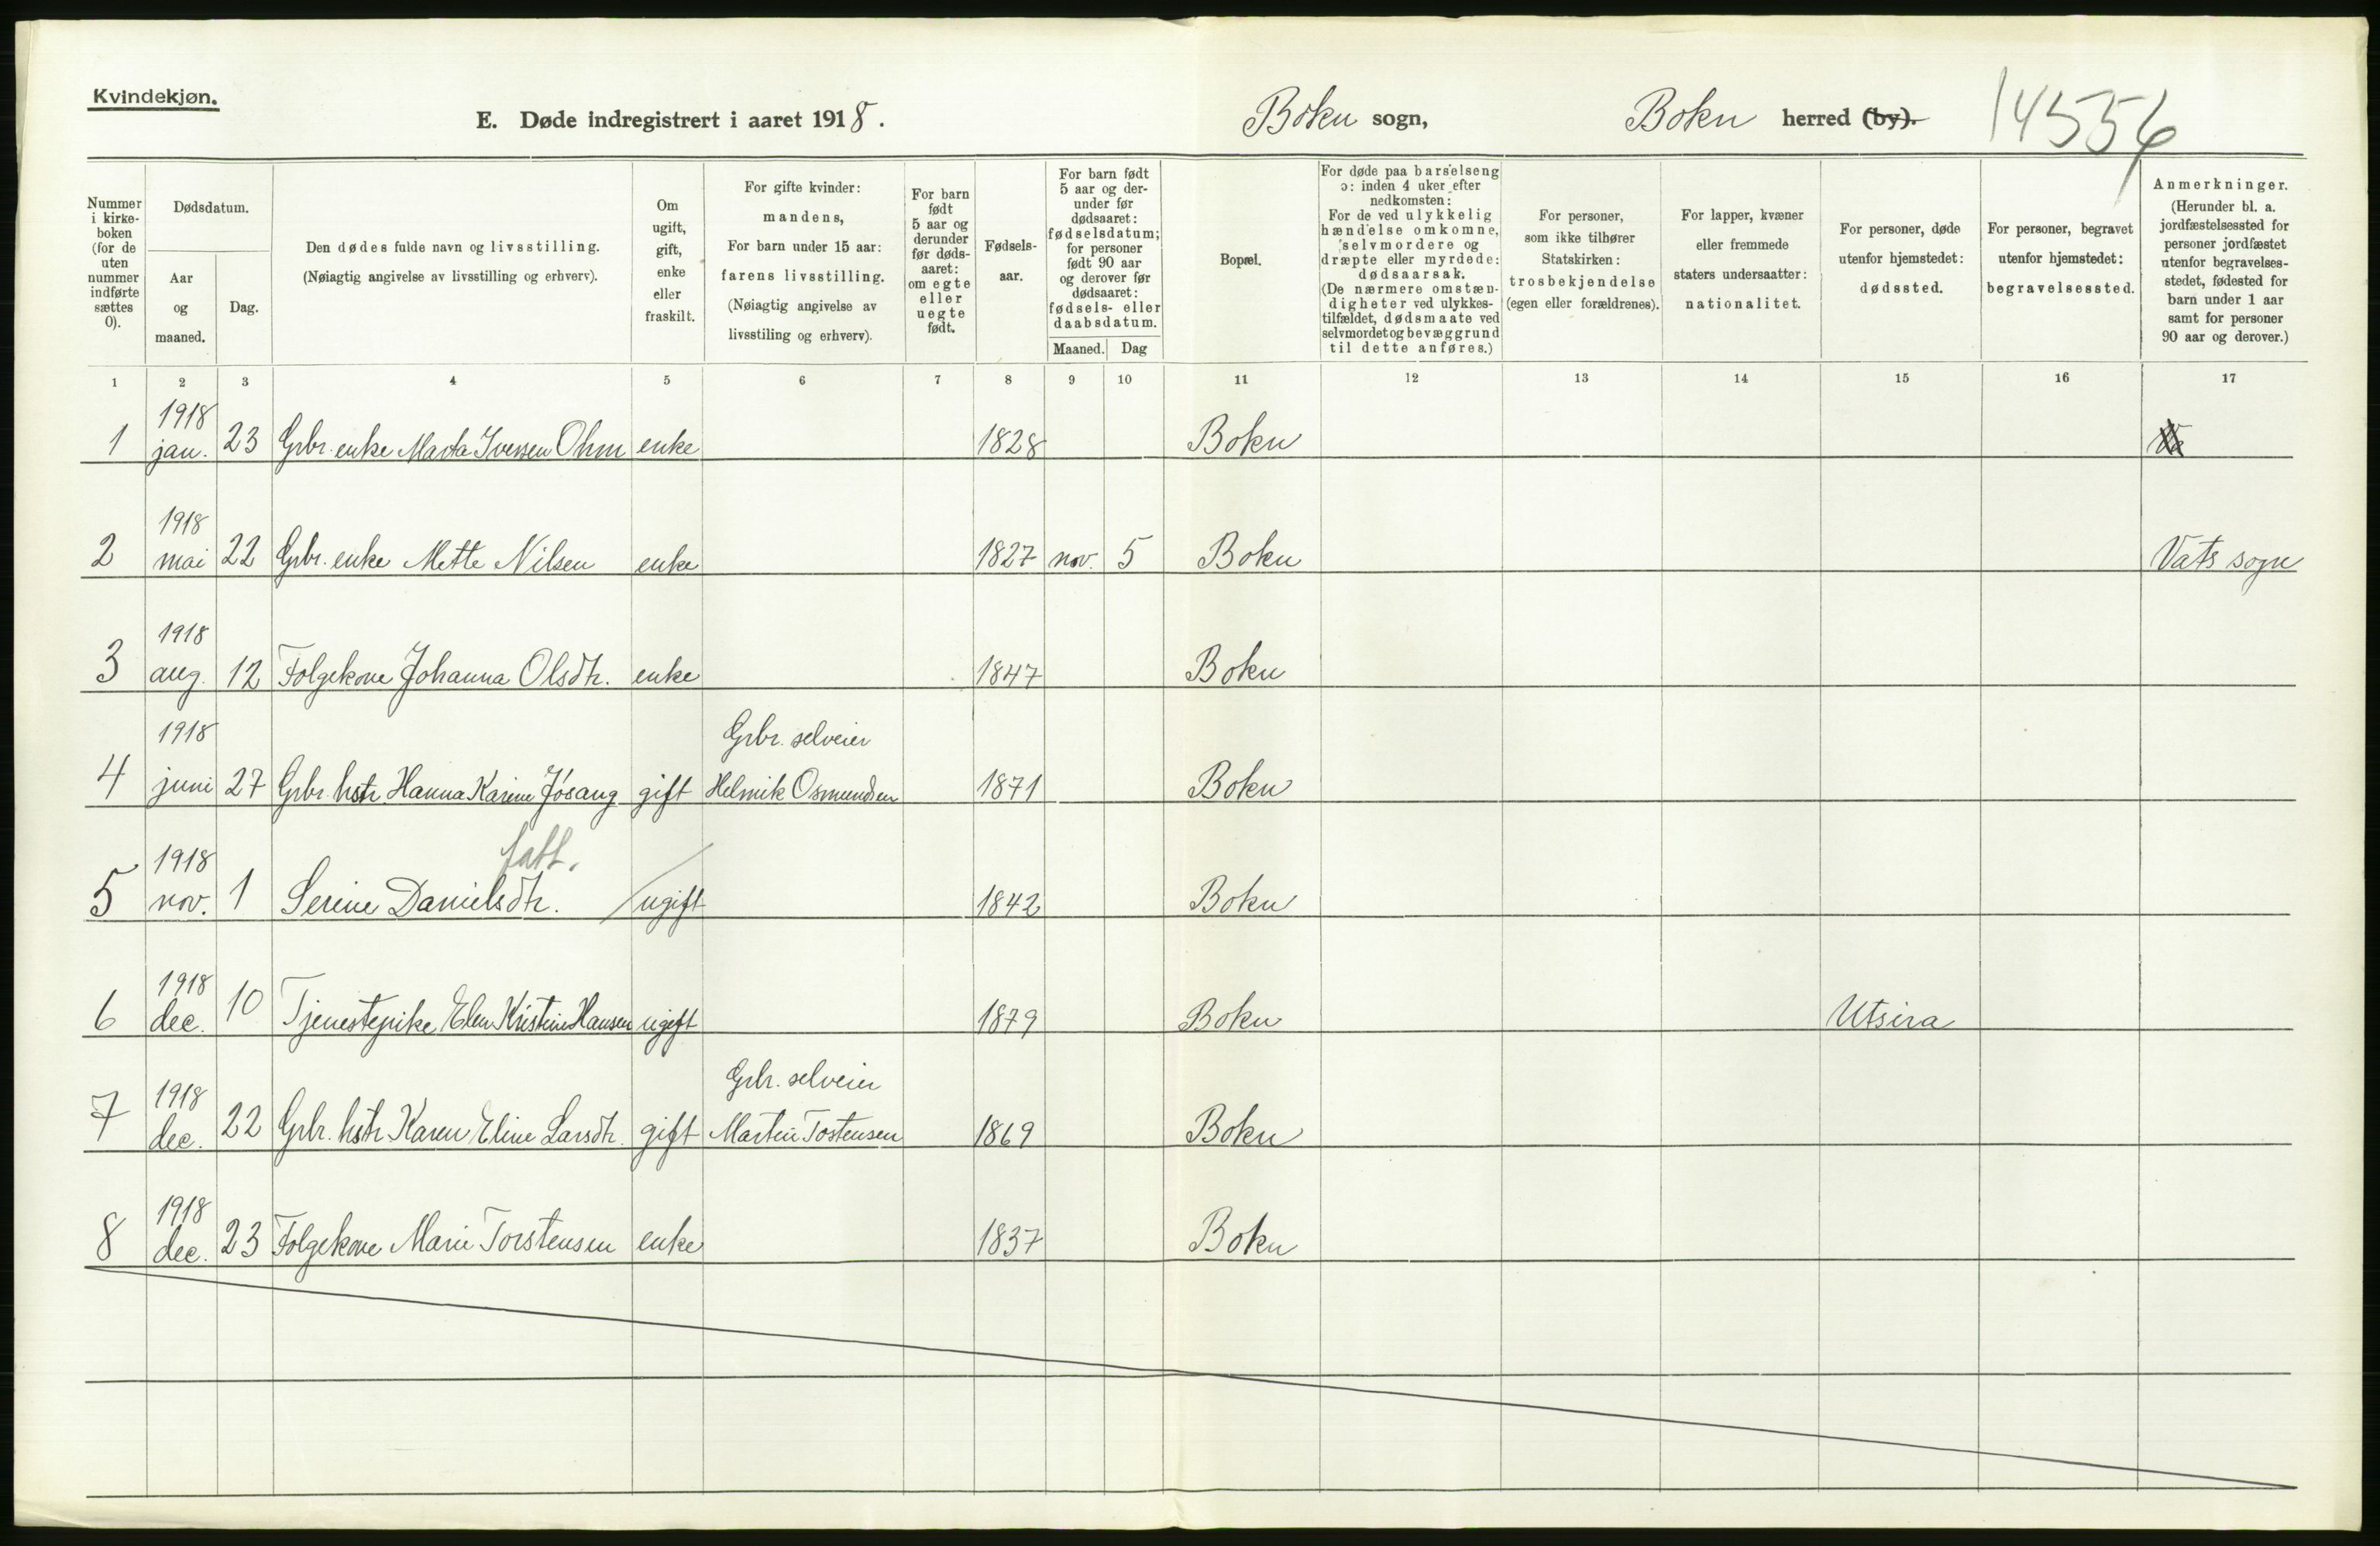 Kvindekjøn.
E. Døde indregistrert i aaret 1918.
Bokn sogn,
Bokn herred (by).
14556
Nummer i kirkeboken (for de uten nummer indførte sættes 0).
Dødsdatum.
Aar og maaned.
Dag.
Den dødes fulde navn og livsstilling.
(Nøiagtig angivelse av livsstilling og erhverv).
Om ugift, gift, enke eller fraskilt.
For gifte kvinder:
mandens,
For barn under 15 aar:
farens livsstilling.
(Nøiagtig angivelse av
livsstiling og erhverv).
For barn født 5 aar og derunder før dødsaaret: om egte eller uegte født.
Fødselsaar.
For barn født 5 aar og derunder før dødsaaret: fødselsdatum; for personer født 90 aar og derover før dødsaaret: fødsels- eller daabsdatum.
Maaned.
Dag
Bopæl.
For døde paa barselseng ɔ: inden 4 uker efter nedkomsten:
For de ved ulykkelig hændelse omkomne, selvmordere og dræpte eller myrdede: dødsaarsak.
(De nærmere omstændigheter ved ulykkestilfældet, dødsmaate ved selvmordet og bevæggrund til dette anføres.)
For personer,
som ikke tilhører
Statskirken:
trosbekjendelse
(egen eller forældrenes).
For lapper, kvæner
eller fremmede
staters undersaatter:
nationalitet.
For personer, døde
utenfor hjemstedet:
dødssted.
For personer, begravet
utenfor hjemstedet:
begravelsessted.
Anmerkninger.
(Herunder bl. a.
jordfæstelsessted for
personer jordfæstet
utenfor begravelses-
stedet, fødested for
barn under 1 aar
samt for personer
90 aar og derover.)
1 2 3 4 5 6 7 8 9 10 11 12 13 14 15 16 17
1918
1 jan. 23 Grbr. enke Marta Iversen Ohm enke 1828 Bokn
1918
2 mai 22 Grbr. enke Mette Nilsen enke 1827 nov. 5 Bokn Vats sogn
1918
3 aug. 12 Folgekone Johanna Olsdtr. enke 1847 Bokn
1918 Grbr. selveier
4 juni 27 Grbr. hstr. Hanna Karine Jøsang gift Helmik Osmundsen 1871 Bokn
1918 fatt.
5 nov. 1 Serine Danielsdtr. ugift 1842 Bokn
1918
6 dec. 10 Tjenestepike Elen Kristine Hansen ugift 1879 Bokn Utsira
1918 Grbr. selveier
7 dec. 22 Grbr. hstr Karen Eline Larsdtr. gift Martin Tostensen 1869 Bokn
1918
8 dec. 23 Folgekone Marie Torstensen enke 1837 Bokn